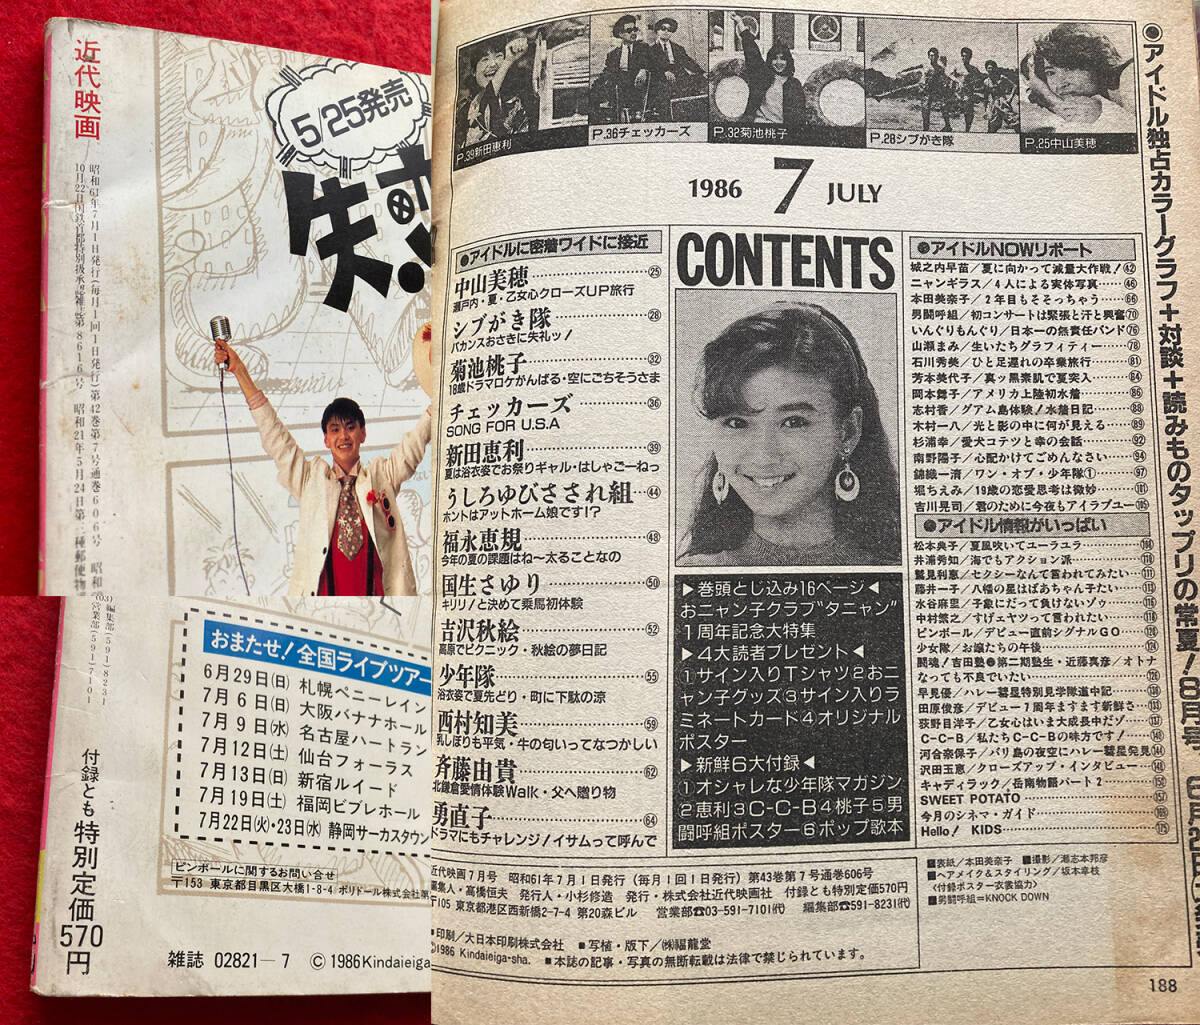 近代映画
昭和61年7月1日発行(毎月1回1日発行)第42巻第7号通巻606号
昭和21年5月24日第三種郵便物
5/25発売
失恋
おまたせ!全国ライブツアー
6月29日(日) 札幌ペニーレイン
7月6日(日) 大阪バナナホール
7月9日(水) 名古屋ハートラン
7月12日(土) 仙台フォーラス
7月13日(日) 新宿ルイード
7月19日(土) 福岡ビブレホール
7月22日(火)・23日(水) 静岡サーカスタウン
ピンボールに関するお問い合せ
〒153 東京都目黒区大橋1-8-4 ポリドール株式会社
付録とも特別定価570円
雑誌 02821-7
©1986 Kindaieiga
P.39新田恵利
P.36チェッカーズ
P.32菊池桃子
P.28シブがき隊
P.25中山美穂
1986 7 JULY
●アイドルに密着ワイドに接近
中山美穂 25
瀬戸内・夏・乙女心クローズUP旅行
シブがき隊 28
バカンスおさきに失礼ッ!
菊池桃子 32
18歳ドラマロケがんばる・空にごちそうさま
チェッカーズ 36
SONG FOR U.S.A
新田恵利 39
夏は浴衣姿でお祭りギャル・はしゃごーねっ
うしろゆびさされ組 44
ホントはアットホーム娘です!?
福永恵規 48
今年の夏の課題はね〜太ることなの
国生さゆり 50
キリリ!と決めて乗馬初体験
吉沢秋絵 52
高原でピクニック・秋絵の夢日記
少年隊 55
浴衣姿で夏先どり・町に下駄の涼
西村知美 59
乳しぼりも平気・牛の匂いってなつかしい
斉藤由貴 62
北鎌倉愛情体験Walk・父へ贈り物
勇直子 64
ドラマにもチャレンジ!イサムって呼んで
CONTENTS
▶巻頭とじ込み16ページ◀
おニャン子クラブ“タニャン”
1周年記念大特集
▶4大読者プレゼント◀
①サイン入りTシャツ②おニ
ャン子グッズ③サイン入りラ
ミネートカード④オリジナル
ポスター
▶新鮮6大付録◀
①オシャレな少年隊マガジン
②恵利③C-C-B④桃子⑤男
闘呼組ポスター⑥ポップ歌本
●アイドルNOWリポート
城之内早苗/夏に向かって減量大作戦! 42
ニャンギラス/4人による実体写真 46
本田美奈子/2年目もそそっちゃう 66
男闘呼組/初コンサートは緊張と汗と興奮 70
いんぐりもんぐり/日本一の無責任バンド 76
山瀬まみ/生いたちグラフィティー 78
石川秀美/ひと足遅れの卒業旅行 81
芳本美代子/真ッ黒素肌で夏突入 84
岡本舞子/アメリカ上陸初水着 86
志村香/グアム島体験!水着日記 88
木村一八/光と影の中に何が見える 89
杉浦幸/愛犬コテツと幸の会話 92
南野陽子/心配かけてごめんなさい 94
錦織一清/ワン・オブ・少年隊① 97
堀ちえみ/19歳の恋愛思考は微妙 101
吉川晃司/君のために今夜もアイラブユー 105
●アイドル情報がいっぱい
松本典子/夏風吹いてユーラユラ
井浦秀知/海でもアクション派
鷲見利恵/セクシーなんて言われてみたい
藤井一子/八幡の星はばあちゃん子たい
水谷麻里/子象にだって負けないゾゥ
中村繁之/すげェヤツって言われたい
ピンボール/デビュー直前シグナルGO
少女隊/お嬢たちの午後
闘魂!吉田塾●第二期塾生・近藤真彦/オトナ
なっても不良でいたい
早見優/ハレー彗星特別見学隊道中記
田原俊彦/デビュー7周年ますます新鮮さ
荻野目洋子/乙女心はいま大成長中だゾ
C-C-B/私たちC-C-Bの味方です!
河合奈保子/バリ島の夜空にハレー彗星発見
沢田玉恵/クローズアップ・インタビュー
キャディラック/岳南物語パート2
SWEET POTATO
今月のシネマ・ガイド
Hello! KIDS
●アイドル独占カラーグラフ+対談+読みものタップリの常夏!8月号
近代映画7月号 昭和61年7月1日発行(毎月1回1日発行) 第43巻第7号通巻606号
編集人・高橋恒夫 発行人・小杉修造 発行・株式会社近代映画社 付録とも特別定価570円
〒105 東京都港区西新橋2-7-4 第20森ビル 営業部☎03-591-7101(代) 編集部☎591-8231(代)
■印刷/大日本印刷株式会社 ■写植・版下/㈱福龍堂
©1986 Kindaieiga-sha. ■本誌の記事・写真の無断転載は法律で禁じられています。
■表紙/本田美奈子 ■撮影/瀬志本邦彦
■ヘアメイク&スタイリング/坂本幸枝
〈付録ポスター衣裳協力〉
■男闘呼組=KNOCK DOWN
188